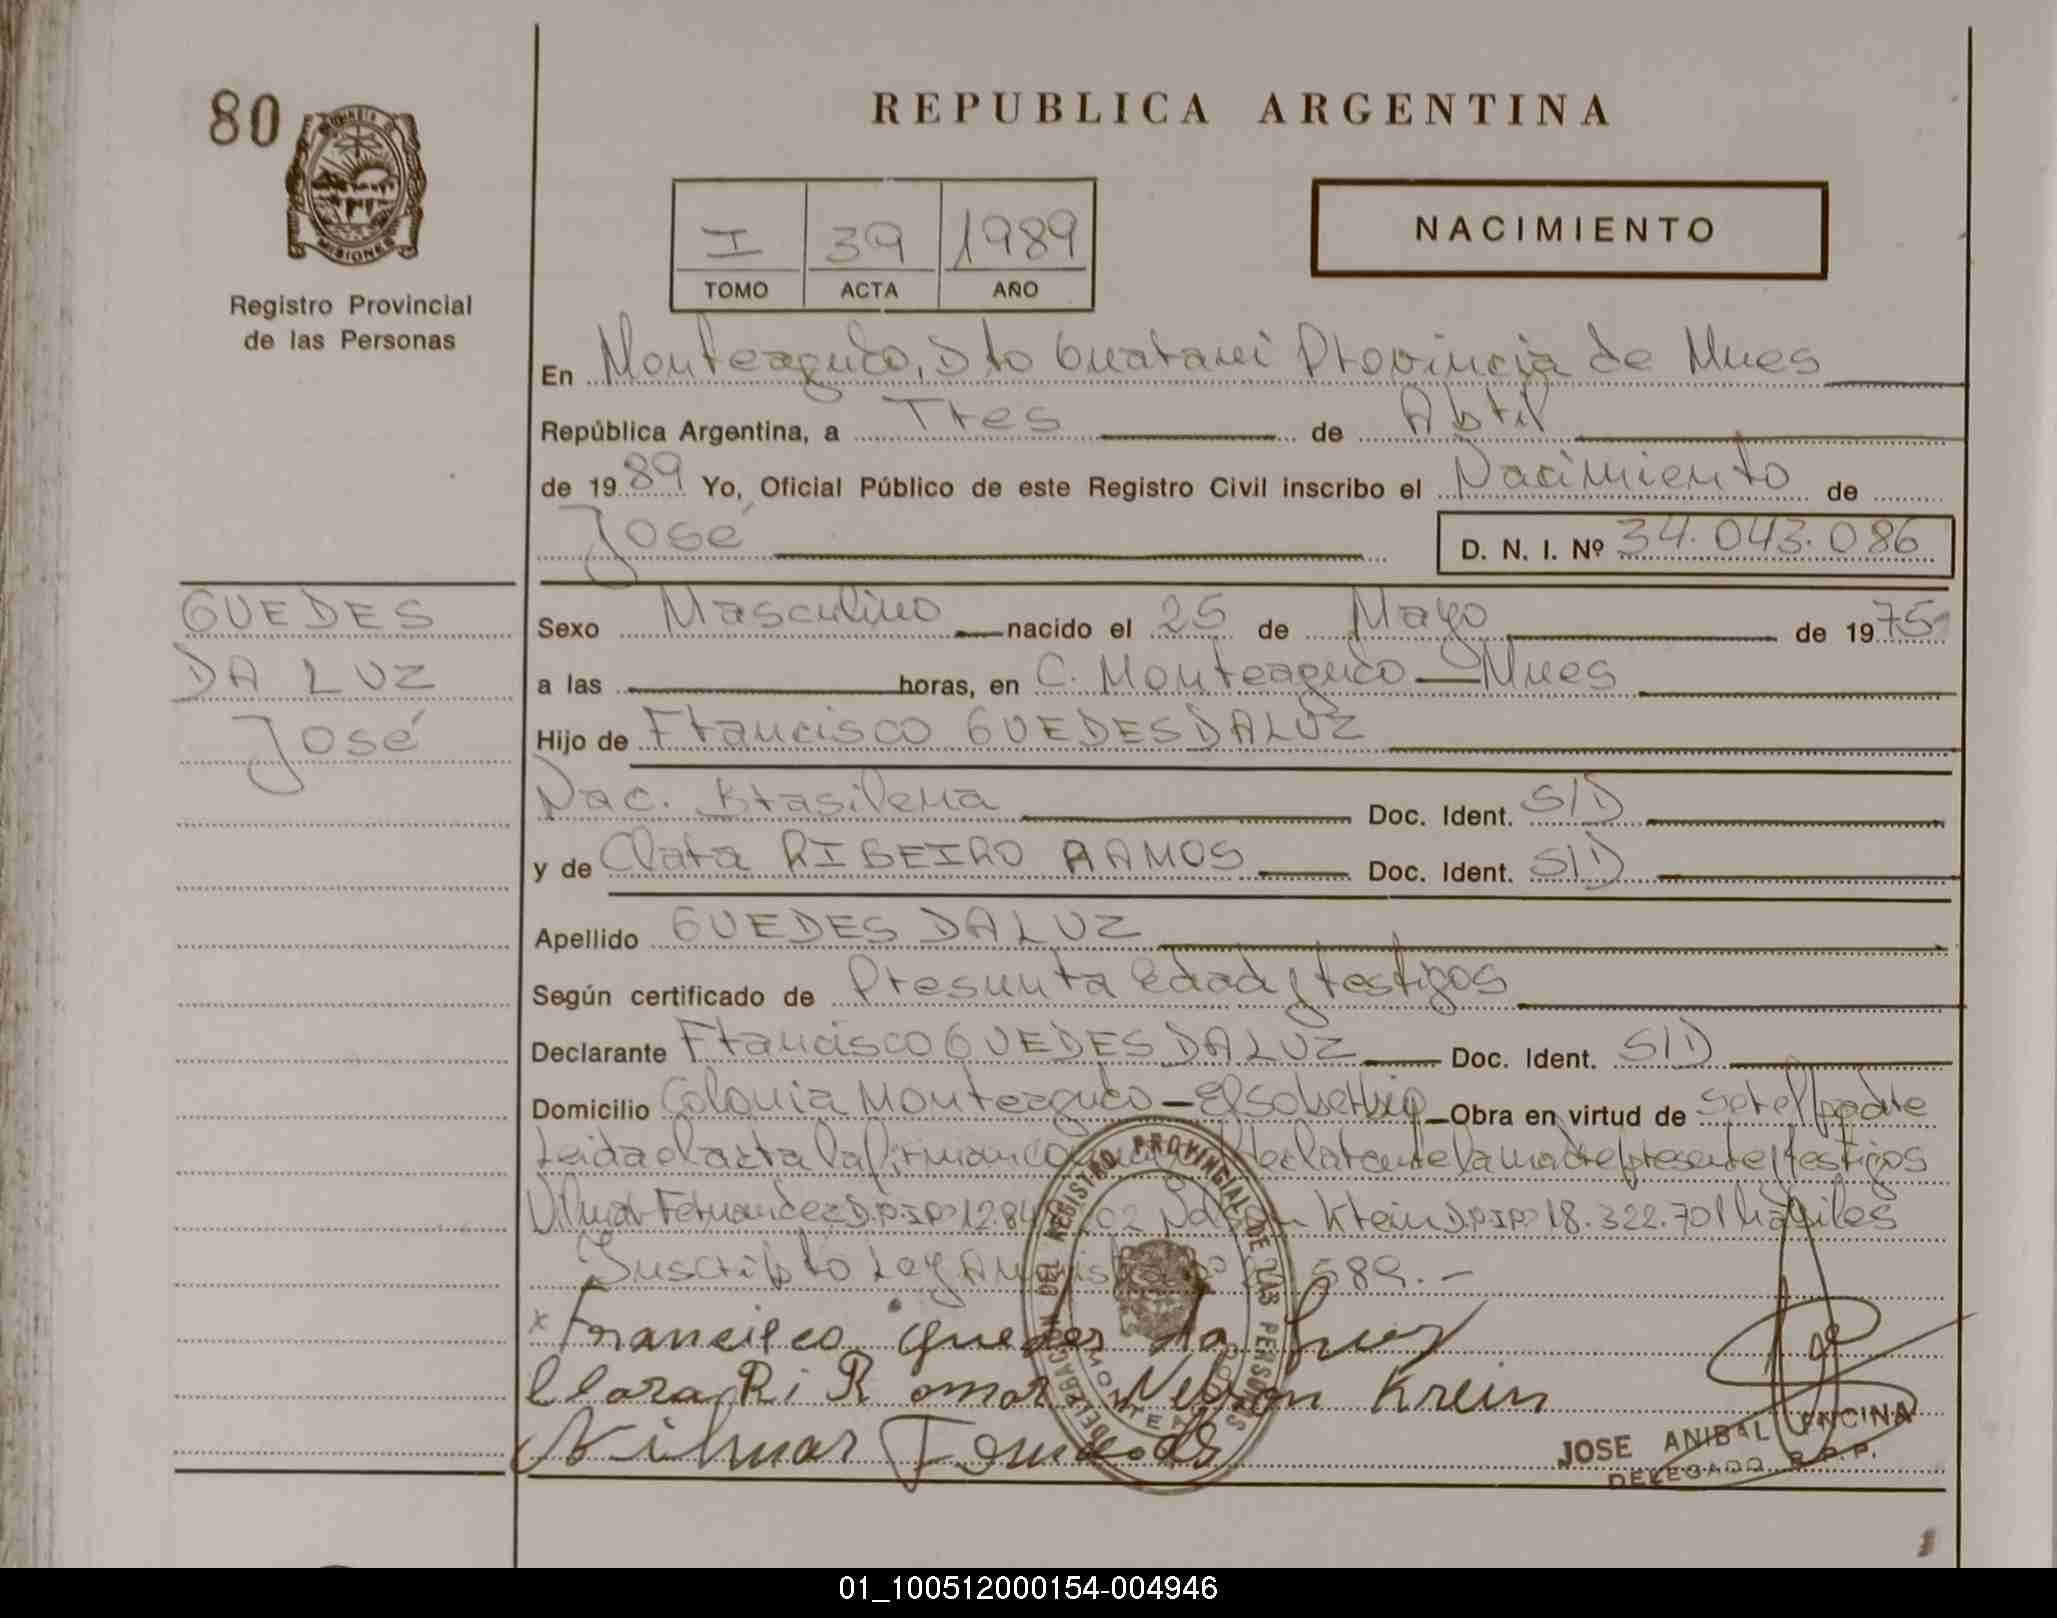 80
PROVINCIA DE
MISIONES
Registro Provincial
de las Personas
REPUBLICA ARGENTINA
I 39 1989
TOMO ACTA AÑO
NACIMIENTO
En Monteagudo, Dto Guarani Provincia de Mnes
República Argentina, a Tres de Abril
de 1989 Yo, Oficial Público de este Registro Civil inscribo el Nacimiento de
José D. N. I. Nº 34.043.086
GUEDES
DA LUZ
José
Sexo Masculino nacido el 25 de Mayo de 1975
a las horas, en C. Monteagudo - Mnes
Hijo de Francisco GUEDES DA LUZ
Nac. Brasilena Doc. Ident. S/D
y de Clara RIBEIRO RAMOS Doc. Ident. S/D
Apellido GUEDES DA LUZ
Según certificado de Presunta edad y testigos
Declarante Francisco GUEDES DA LUZ Doc. Ident. S/D
Domicilio Colonia Monteagudo - El Soberbio - Obra en virtud de ser el padre
Leida el acta la firman el declarante la madre presente y testigos
Vilmar Fernandez Nelson Krein 18.322.701 habiles
Suscripto Ley Amnistia
x Francisco guedes da Luz
Clara Ri R amos Nelson Krein
Vilmar
DELEGACION DEL REGISTRO PROVINCIAL DE LAS PERSONAS
MONTEAGUDO
JOSE ANIBAL ENCINA
DELEGADO R.P.P.
1
01_100512000154-004946